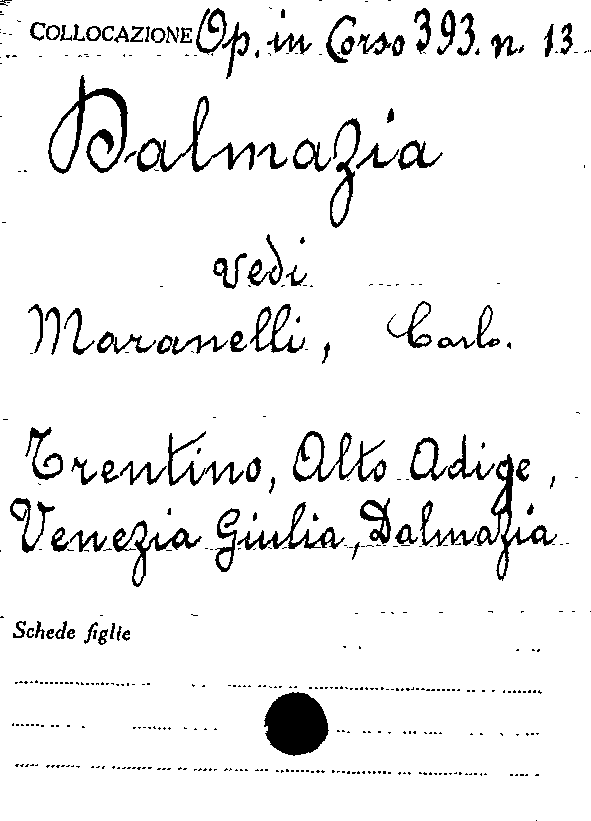 COLLOCAZIONE Op. in Corso 393. n. 13
Dalmazia
vedi
Maranelli, Carlo.
Trentino, Alto Adige,
Venezia Giulia, Dalmazia
Schede figlie